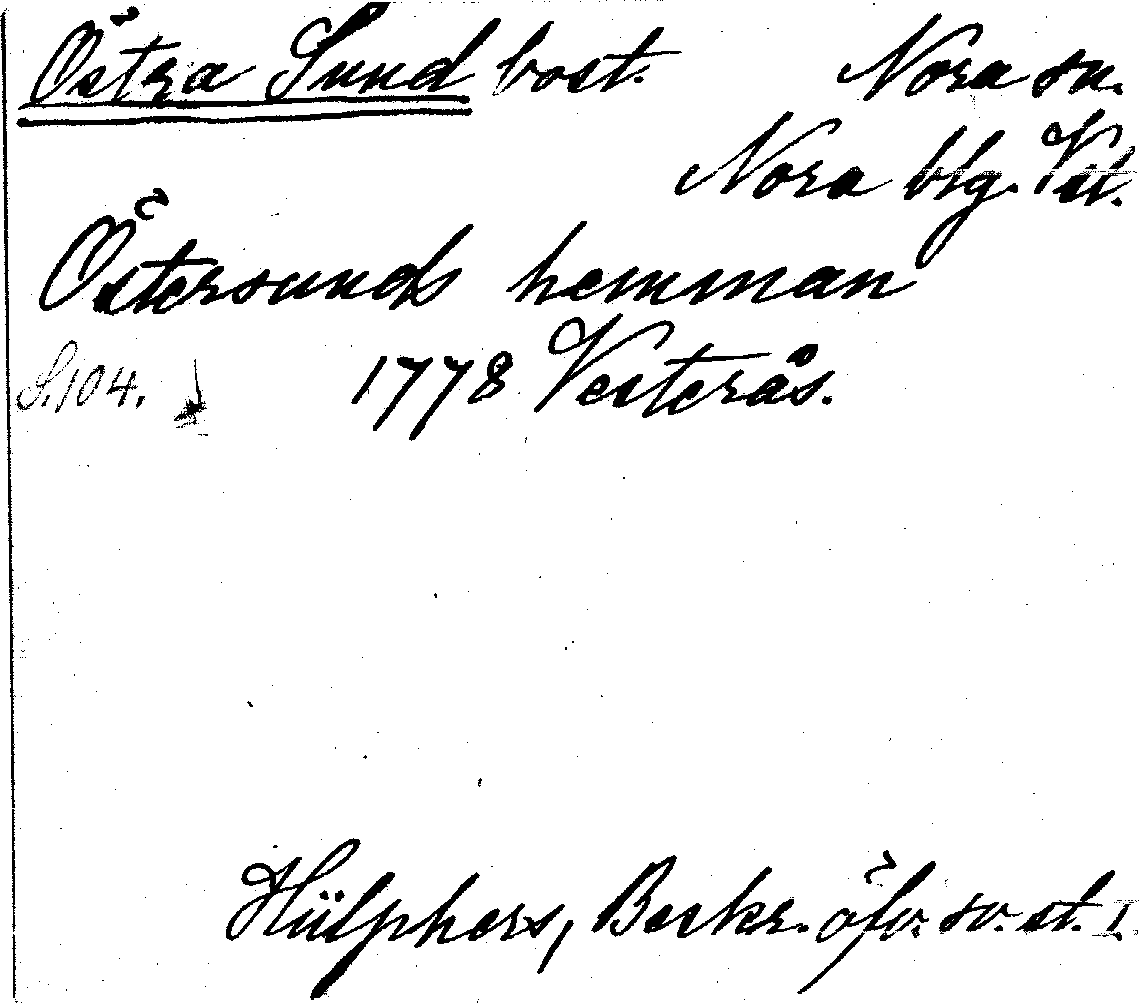 Östra Sund bost. Nora sn.
Nora blg. Vstl.
Östersunds hemman
S. 104. 1778 Vesterås.
Hülphers, Beskr. öfv. sv. st. I.